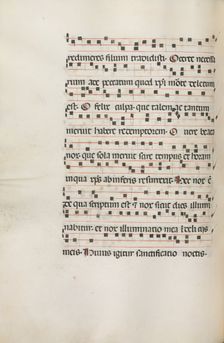 redimeres filium tradidisti. O certe necessa
rium ade peccatum quod xpi morte deletum
est. O felix culpa que talem ac tantum
meruit habere redemptorem. O vere beata
nox que sola meruit scire tempus et horam
in qua xps ab inferis resurrexit. Hec nox e
de qua scriptum est et nox sicut dies illumi
nabitur et nox illuminatio mea in deliciis
meis. Huius igitur sanctificatio noctis